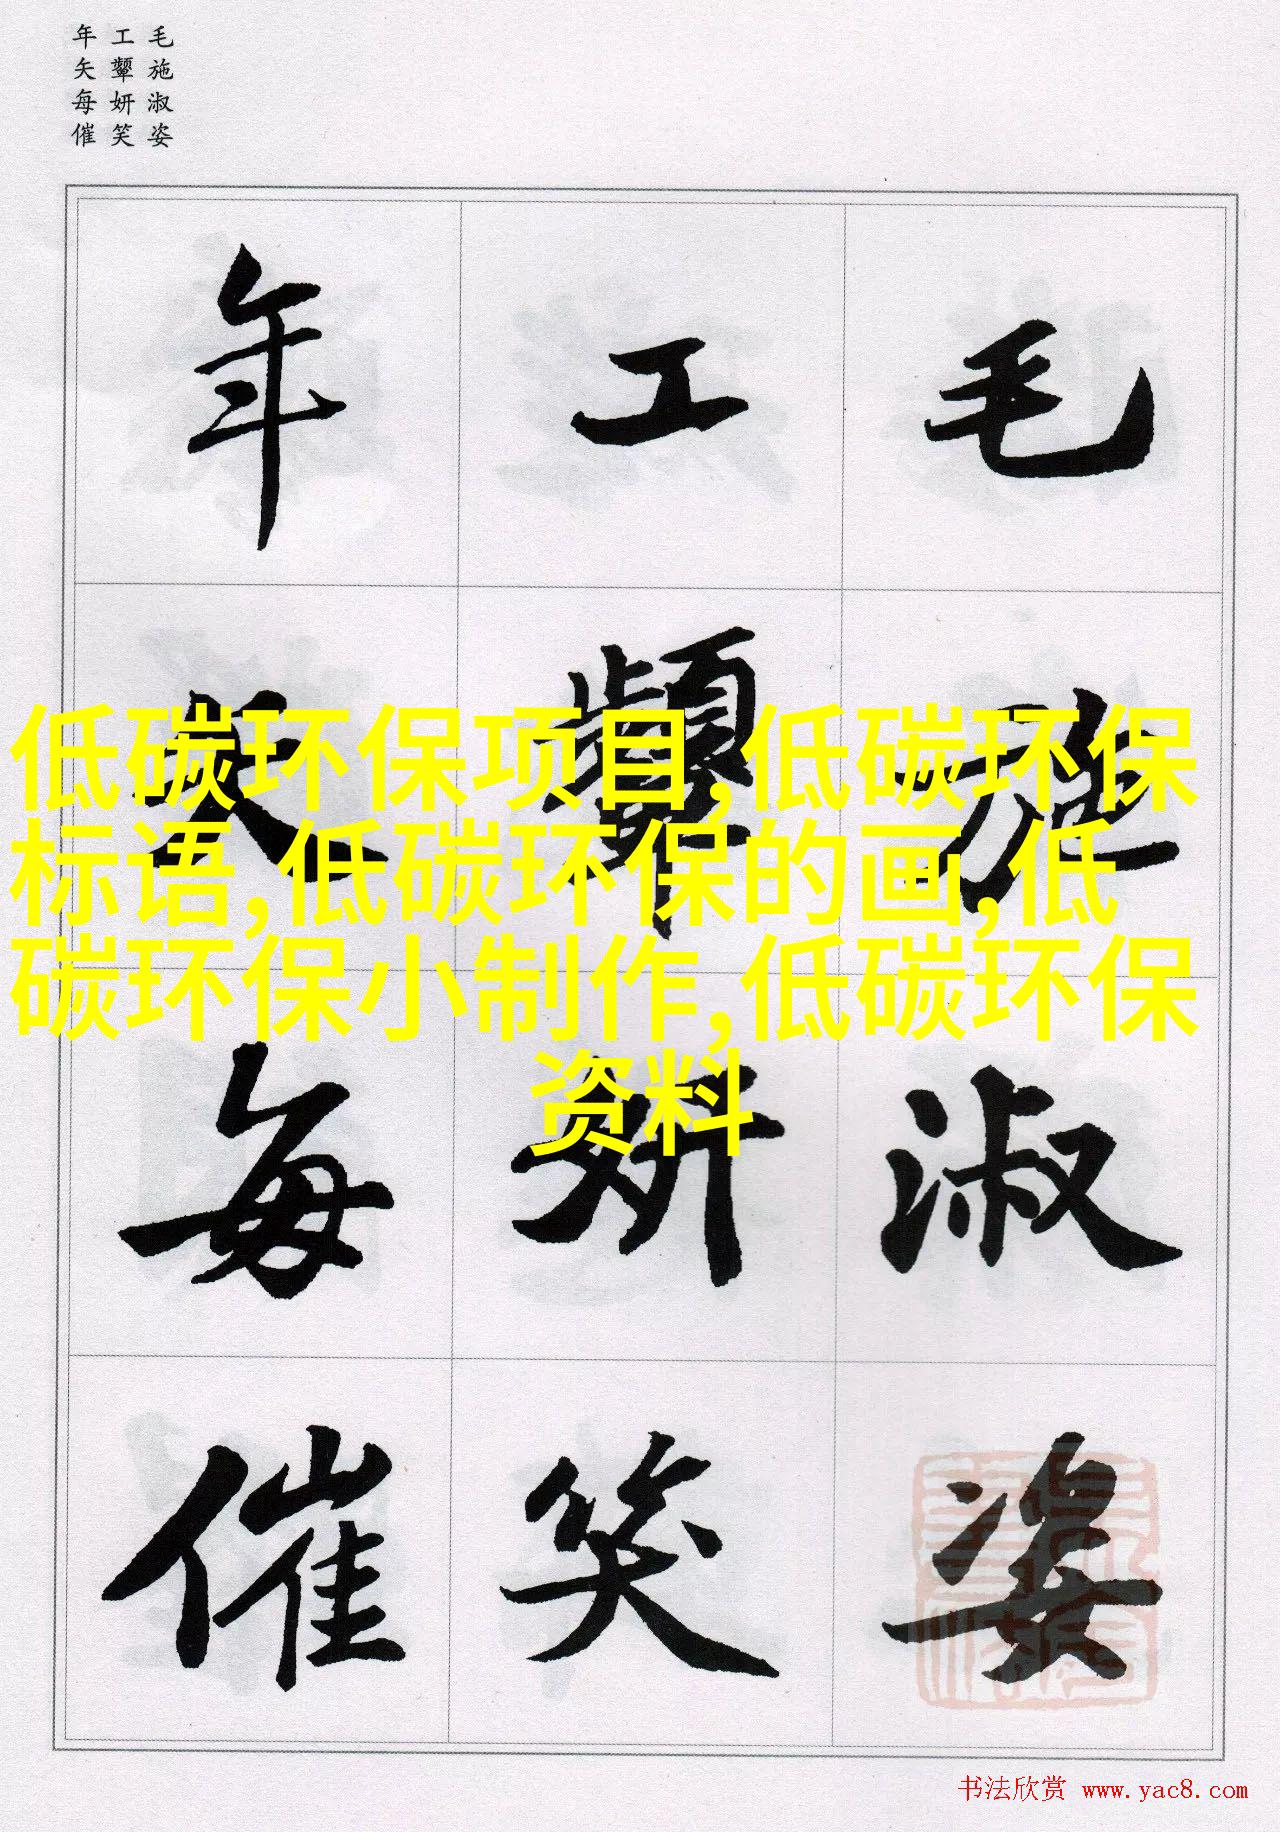 毛施淑姿
工颦妍笑
年矢每催
毛施淑姿
工颦妍笑
年矢每催
低碳环保项目,低碳环保
标语,低碳环保的画,低
碳环保小制作,低碳环保
资料
书法欣赏 www.yac8.com